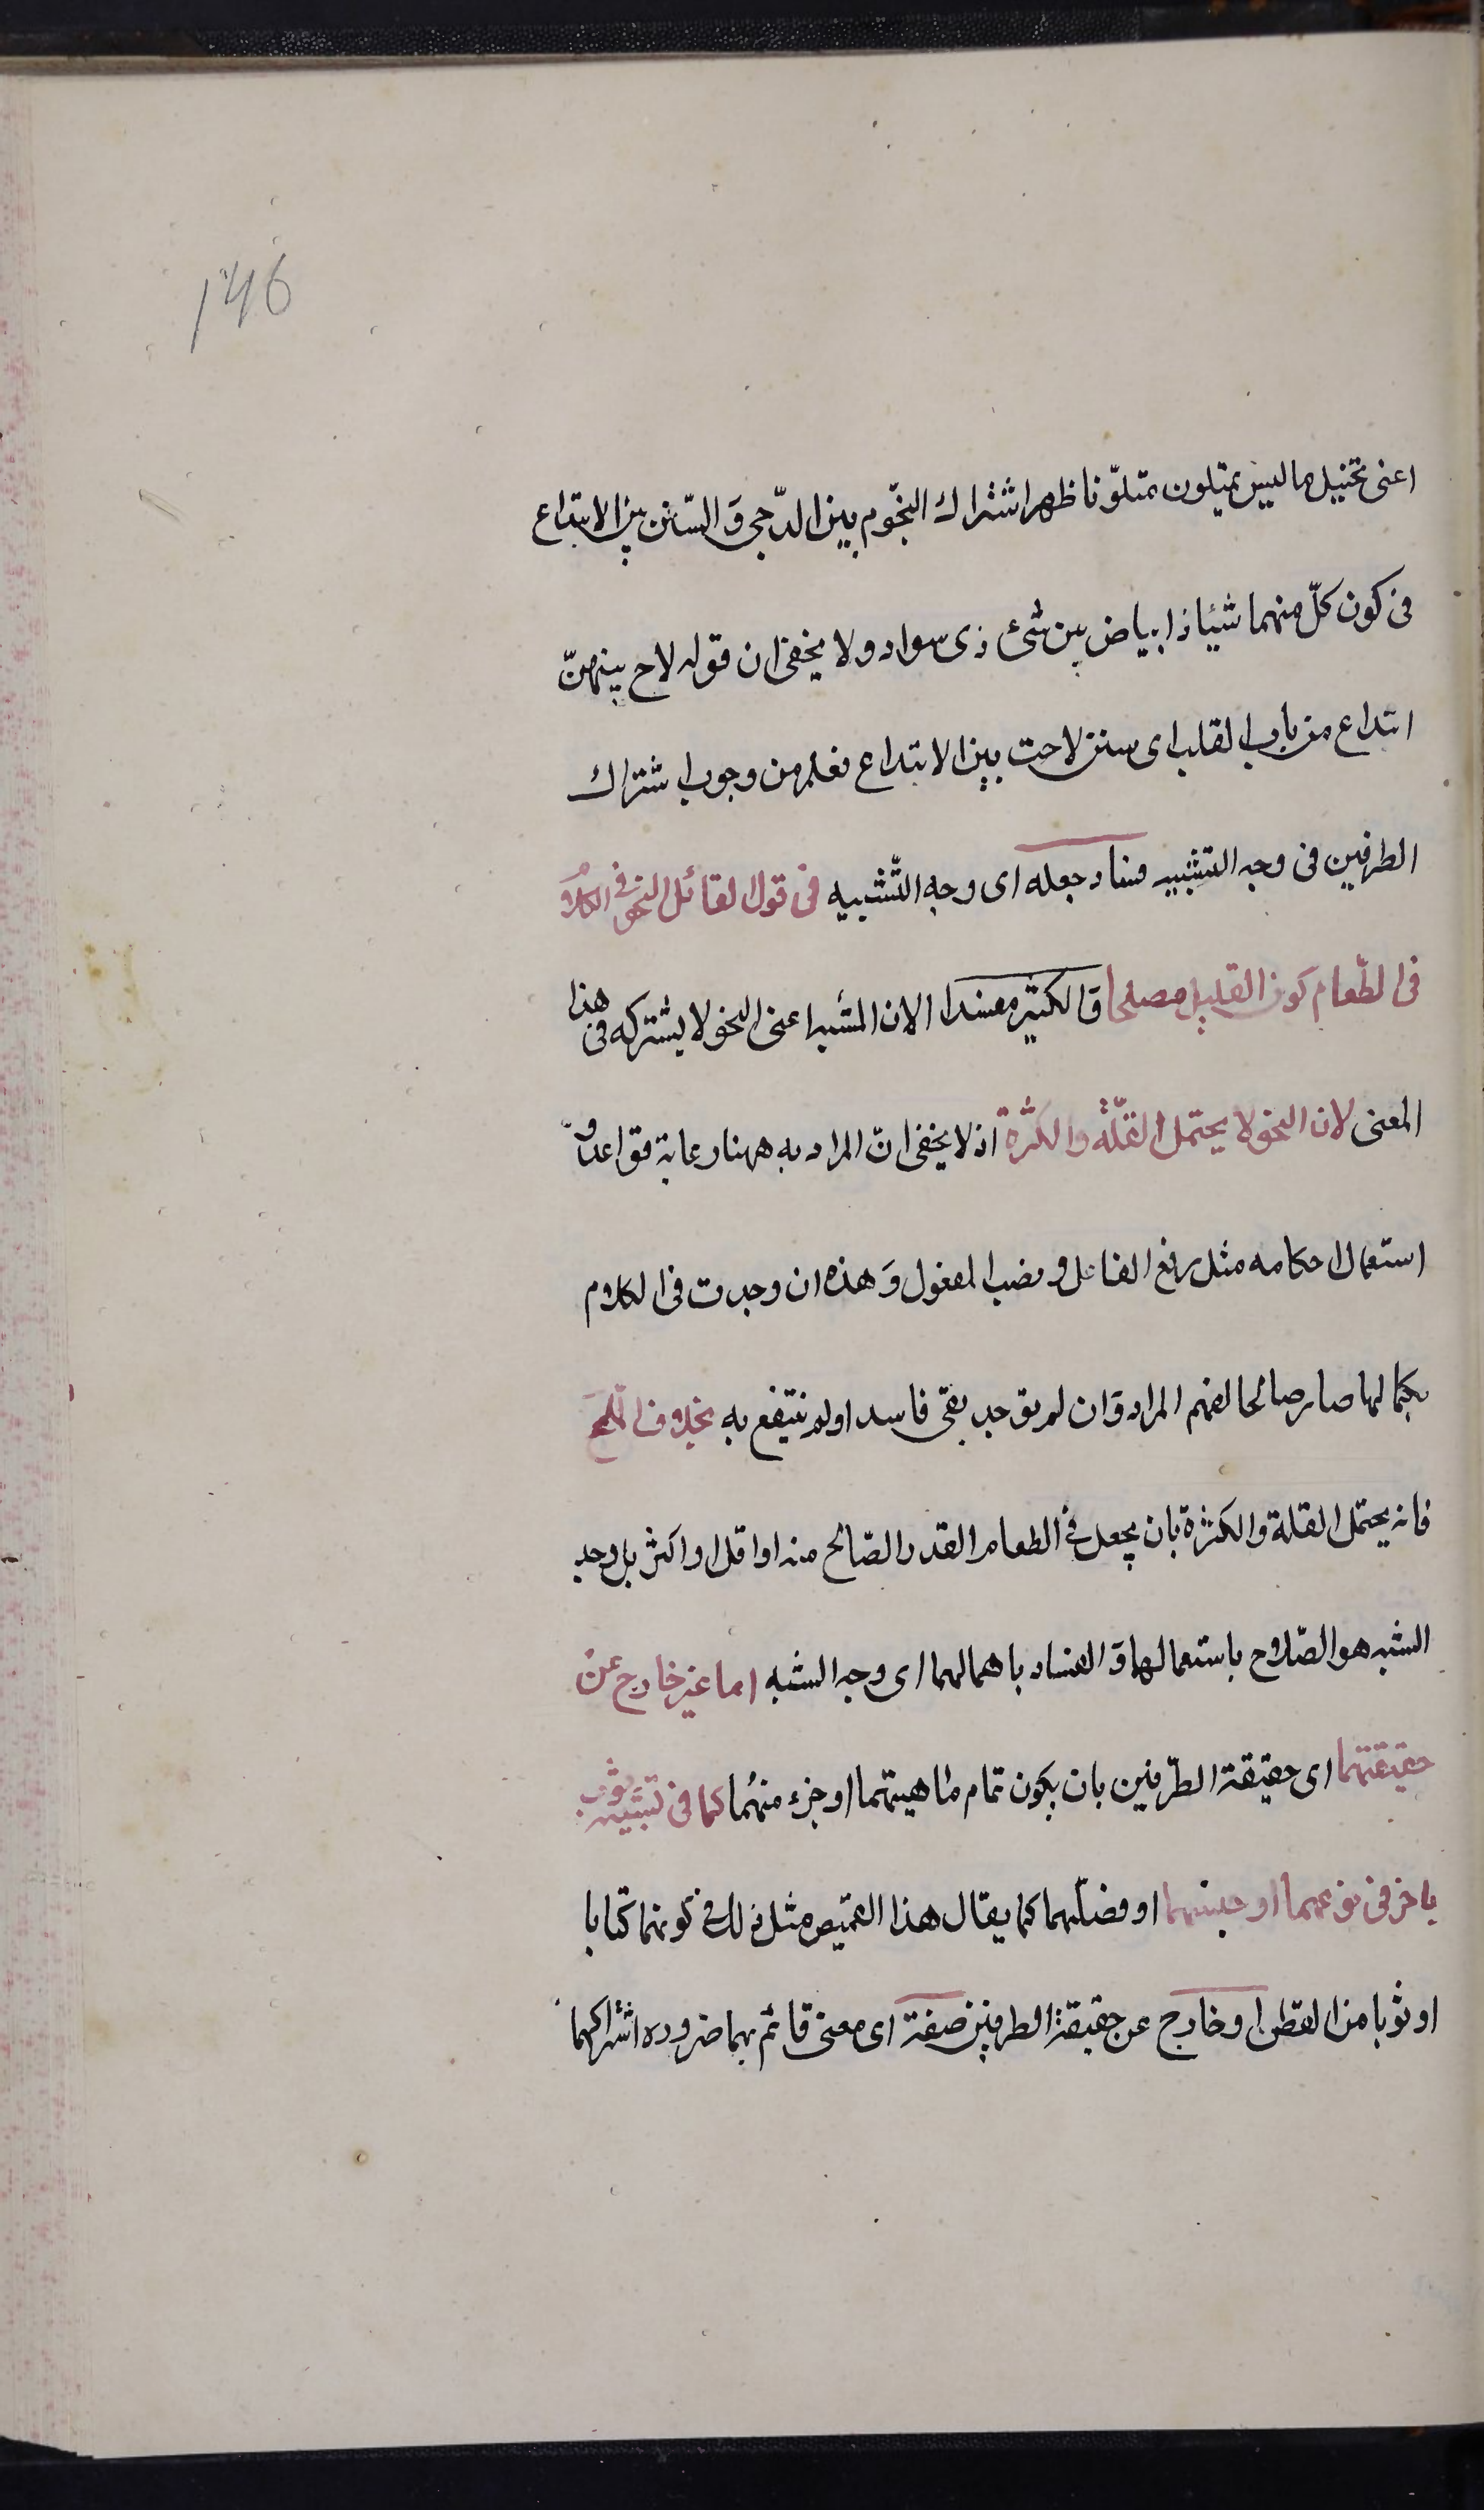 146
اعنى تخييل ما ليس بمتلون متلوّنا ظهر اشتراك النجّوم بين الدّجى وَالسّنن بين الابتداع
فى كون كلّ منهما شيئا ذا بياض بين شئ ذى سواد ولا يخفى ان قوله لاح بينهنّ
ابتداع من باب القلب اى سنن لاحت بين الابتداع فعلم من وجوب اشتراك
الطرفين فى وجه التشبيه فساد جعله اى وجه التّشبيه فى قول القائل النحو فى الكلام
فى الطّعام كون القليل مصلحا وَالكثير مفسدا الان المشبه اعنى النحو لا يشترك فى هذا
المعنى لان النحو لا يحتمل القلّة والكثرة اذ لا يخفى انّ المراد به ههنا رعاية قواعده و
استعمال احكامه مثل رفع الفاعل ونصب المفعول وَهذه ان وجدت فى الكلام
بكمالها صار صالحا لفهم المراد وَان لم يوجد بقى فاسد اولم ينتفع به بخلاف الملح
فانه يحتمل القلة والكثرة بان يجعل فى الطعام القدر الصّالح منه او اقل او اكثر بل وجه
الشبه هو الصّلاح باستعمالهما وَالفساد باهمالهما اى وجه الشبه اما غير خارج عن
حقيقتهما اى حقيقة الطّرفين بان يكون تمام ماهيتهما او جزء منهُما كما فى تشبيه ثوب
باخر فى نوعهما او جنسهما او فصلهما كما يقال هذا القميص مثل ذلك فى كونهما كتابا
او ثوبا من القطن او خارج عن حقيقة الطرفين صفة اى معنى قائم بهما ضروره اشتراكهما